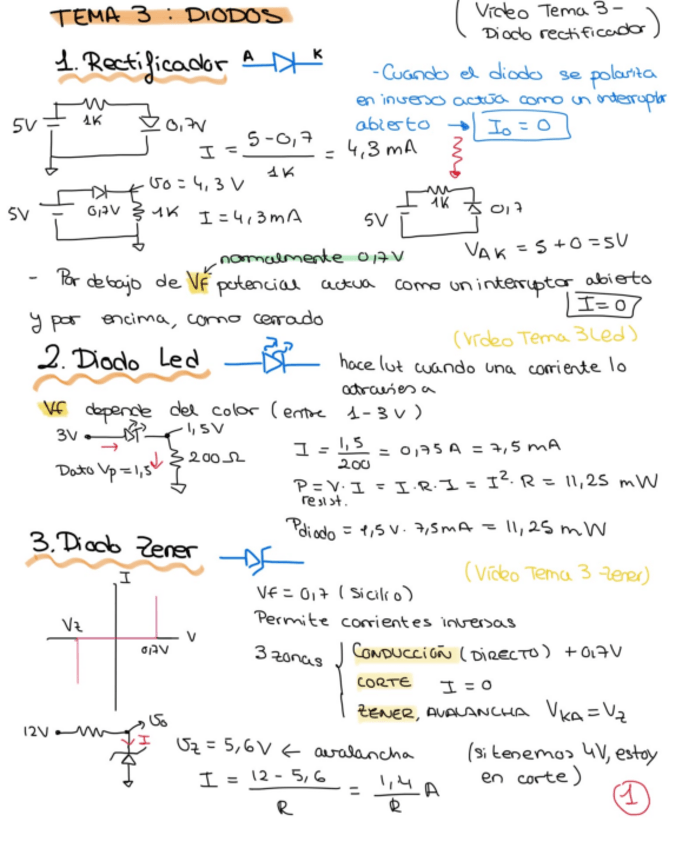 TEMA 3 : DIODOS
(Vídeo Tema 3 -
Diodo rectificador)
1. Rectificador
A K
-Cuando el diodo se polariza
en inverso actúa como un interruptor
abierto → I₀ = 0
5V 1K 0,7V
I = 5-0,7 / 1K = 4,3 mA
5V 0,7V 1K
υo = 4,3 V
I = 4,3mA
5V 1K 0,7
VAK = 5 + 0 = 5V
normalmente 0,7V
- Por debajo de Vf potencial actua como un interruptor abierto
I = 0
y por encima, como cerrado
(Vídeo Tema 3 Led)
2. Diodo Led
hace luz cuando una corriente lo
atraviesa
Vf depende del color (entre 1-3 V)
3V 1,5V
200Ω
Dato Vp = 1,5
I = 1,5 / 200 = 0,75 A = 7,5 mA
P = V · I = I · R · I = I² · R = 11,25 mW
resist.
Pdiodo = 1,5 V · 7,5mA = 11,25 mW
3. Diodo Zener
(Vídeo Tema 3 zener)
Vf = 0,7 (silicio)
Permite corrientes inversas
I
Vz V
0,7V
3 zonas
CONDUCCIÓN (DIRECTO) + 0,7V
CORTE I = 0
ZENER, AVALANCHA VKA = Vz
12V υo
I
υz = 5,6V ← avalancha
(si tenemos 4V, estoy
en corte)
I = 12 - 5,6 / R = 1,4 / R A
1